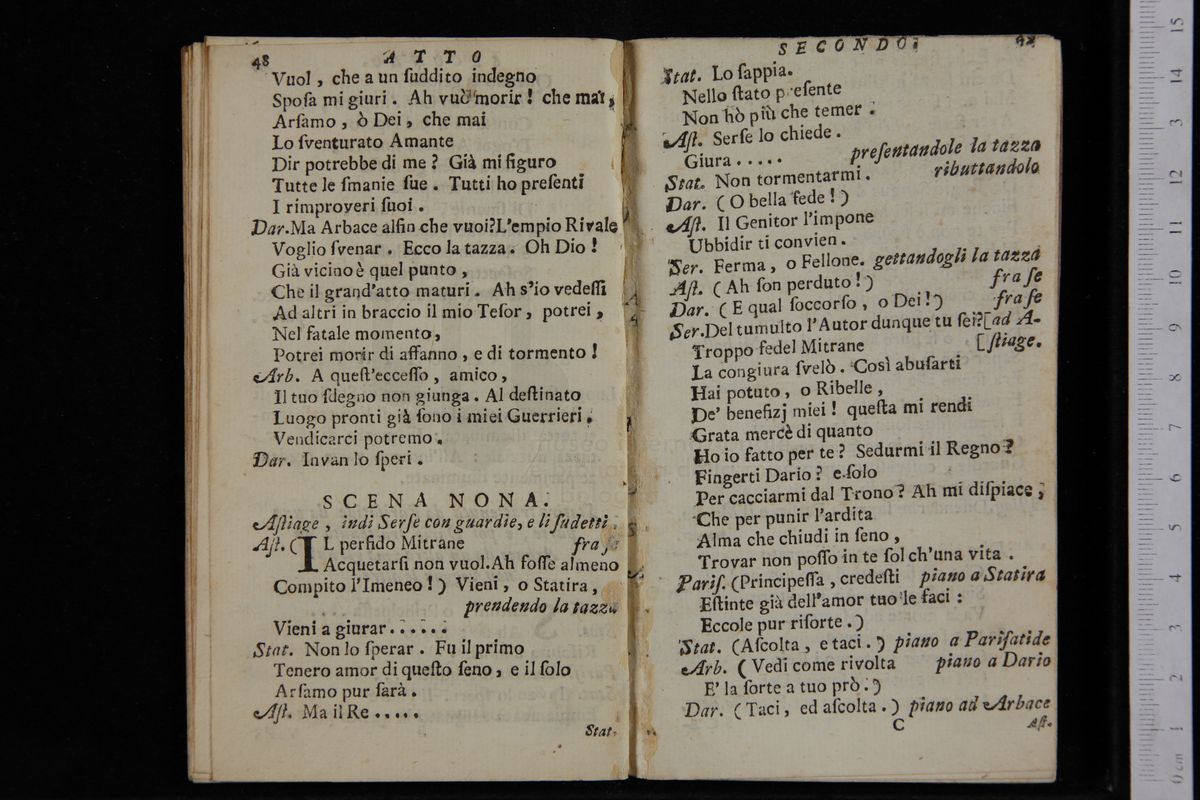 48 ATTO
Vuol, che a un ſuddito indegno
Spoſa mi giuri. Ah vuò morir! che mai,
Arſamo, ò Dei, che mai
Lo ſventurato Amante
Dir potrebbe di me? Già mi figuro
Tutte le ſmanie ſue. Tutti ho preſenti
I rimproveri ſuoi.
Dar. Ma Arbace alfin che vuoi? L'empio Rivale
Voglio ſvenar. Ecco la tazza. Oh Dio!
Già vicino è quel punto,
Che il grand'atto maturi. Ah s'io vedeſſi
Ad altri in braccio il mio Teſor, potrei,
Nel fatale momento,
Potrei morir di affanno, e di tormento!
Arb. A queſt'ecceſſo, amico,
Il tuo ſdegno non giunga. Al deſtinato
Luogo pronti già ſono i miei Guerrieri.
Vendicarci potremo.
Dar. Invan lo ſperi.
SCENA NONA.
Aſtiage, indi Serſe con guardie, e li ſudetti.
Aſt. (IL perfido Mitrane fra ſe
Acquetarſi non vuol. Ah foſſe almeno
Compito l'Imeneo!) Vieni, o Statira,
prendendo la tazza
Vieni a giurar......
Stat. Non lo ſperar. Fu il primo
Tenero amor di queſto ſeno, e il ſolo
Arſamo pur ſarà.
Aſt. Ma il Re.....
Stat.
SECONDO.
Stat. Lo ſappia.
Nello ſtato preſente
Non hò più che temer.
Aſt. Serſe lo chiede.
Giura..... preſentandole la tazza
Stat. Non tormentarmi. ributtandolo
Dar. (O bella fede!)
Aſt. Il Genitor l'impone
Ubbidir ti convien.
Ser. Ferma, o Fellone. gettandogli la tazza
Aſt. (Ah ſon perduto!) fra ſe
Dar. (E qual ſoccorſo, o Dei!) fra ſe
Ser. Del tumulto l'Autor dunque tu ſei? [ad A-
Troppo fedel Mitrane [ſtiage.
La congiura ſvelò. Così abuſarti
Hai potuto, o Ribelle,
De' benefizj miei! queſta mi rendi
Grata mercè di quanto
Ho io fatto per te? Sedurmi il Regno?
Fingerti Dario? e ſolo
Per cacciarmi dal Trono? Ah mi diſpiace,
Che per punir l'ardita
Alma che chiudi in ſeno,
Trovar non poſſo in te ſol ch'una vita.
Pariſ. (Principeſſa, credeſti piano a Statira
Eſtinte già dell'amor tuo le faci:
Eccole pur riſorte.)
Stat. (Aſcolta, e taci.) piano a Pariſatide
Arb. (Vedi come rivolta piano a Dario
E' la ſorte a tuo prò.)
Dar. (Taci, ed aſcolta.) piano ad Arbace
C Aſt.